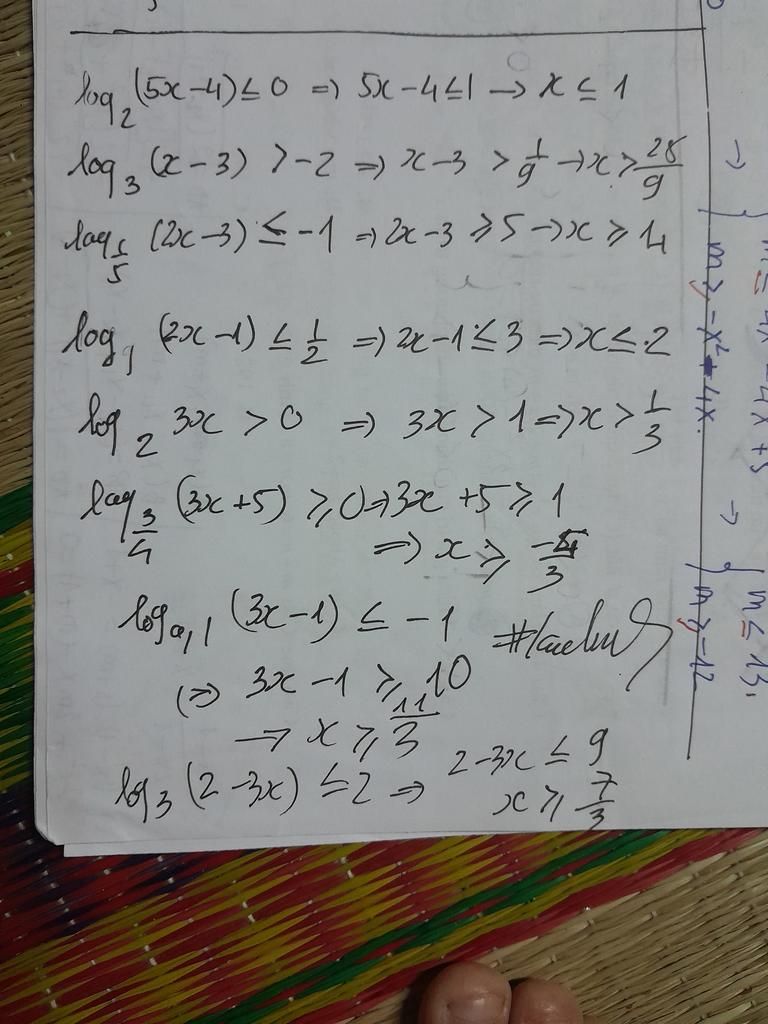 log₂(5x-4) ≤ 0 => 5x-4 ≤ 1 → x ≤ 1
log₃(x-3) > -2 => x-3 > 1/9 → x > 28/9
log_{1/5}(2x-3) ≤ -1 => 2x-3 ≥ 5 → x ≥ 4
log₉(2x-1) ≤ 1/2 => 2x-1 ≤ 3 => x ≤ 2
log₂ 3x > 0 => 3x > 1 => x > 1/3
log_{3/4}(3x+5) ≥ 0 => 3x+5 ≥ 1
=> x ≥
log_{0,1}(3x-1) ≤ -1
(=> 3x-1 ≥ 10
→ x ≥ 11/3
log₃(2-3x) ≤ 2 => 2-3x ≤ 9
x ≥ -7/3
m ≥ -x²+4x
m ≤ 13
m ≥ -12